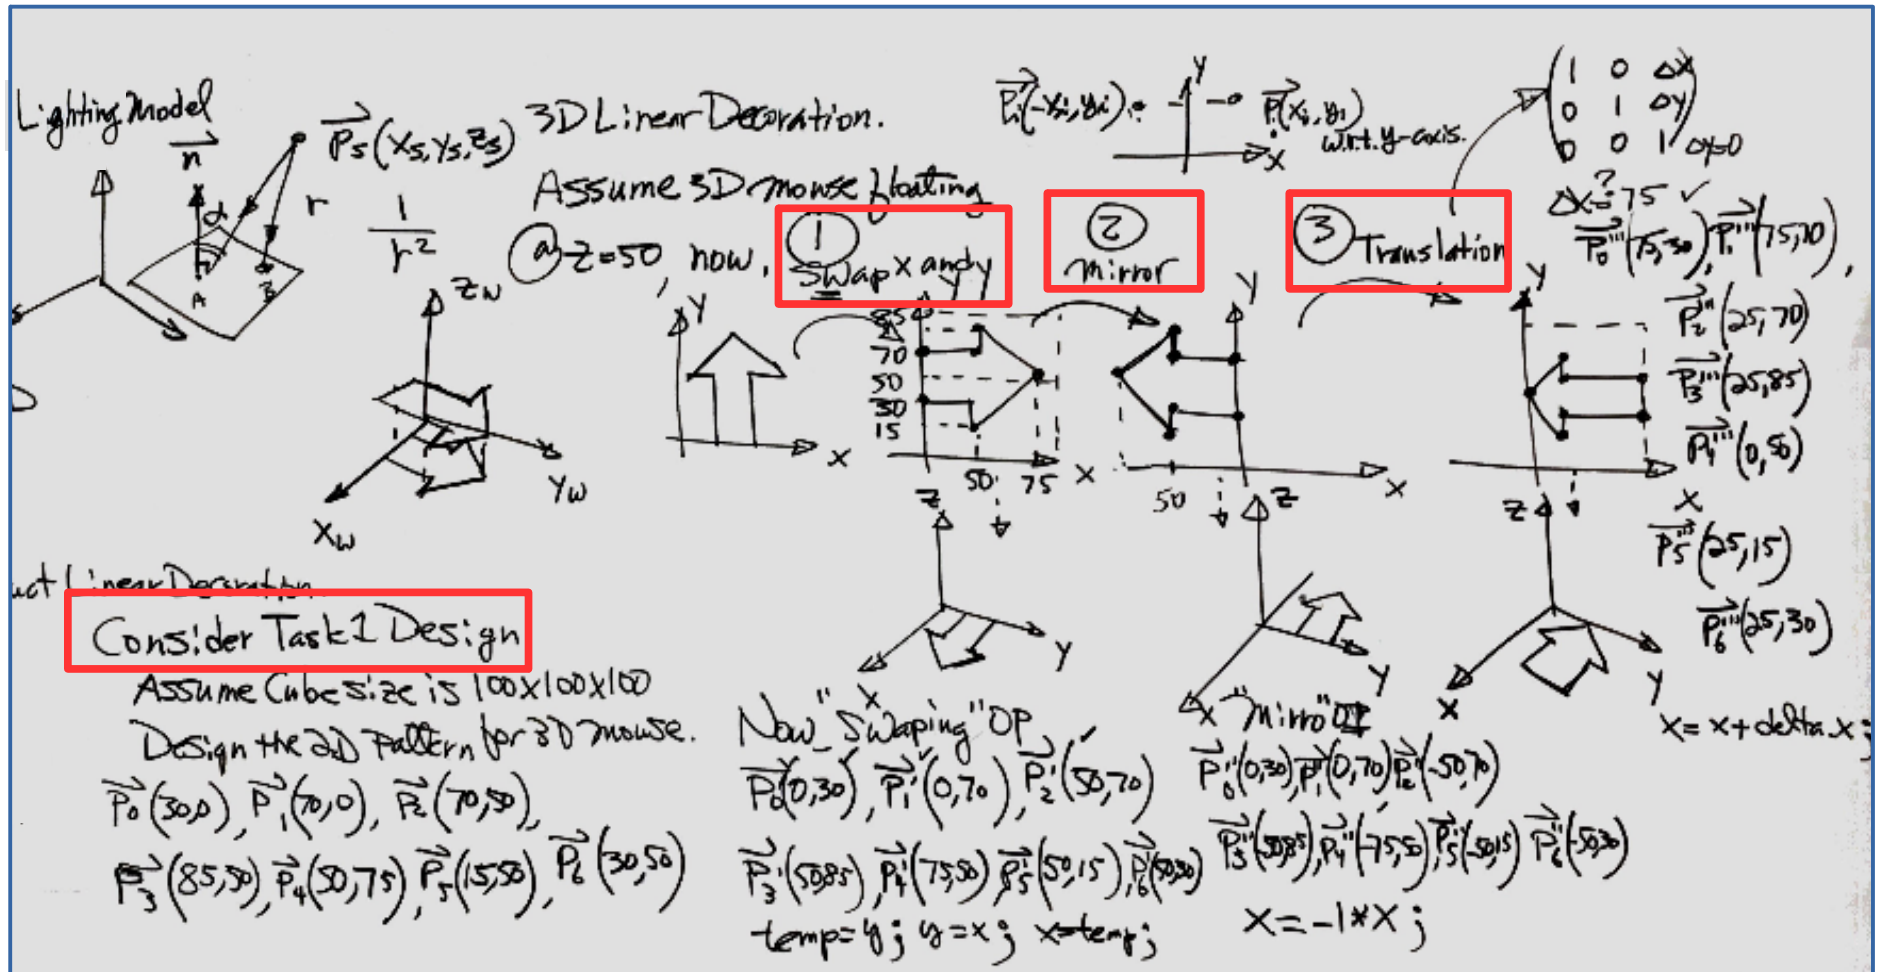 Lighting Model
n
P5(X5, Y5, Z5)
r
1/r²
α
A
B
3D Linear Decoration.
Assume 3D mouse floating
@ Z=50, now,
① Swap x and y
② mirror
③ Translation
Pi(-xi, yi)
Y
X
P(xi, yi)
w.r.t. y-axis.
1 0 ΔX
0 1 ΔY
0 0 1
ΔY=0
ΔX=75 ✓
?
P0'''(75,30), P1'''(75,70),
P2'''(25,70)
P3'''(25,85)
P4'''(0,50)
P5'''(25,15)
P6'''(25,30)
X = X + delta_x;
Zw
Yw
Xw
Y
X
Y
85
70
50
30
15
50 75
X
Y
50
X
Y
X
Z
Y
X
Z
Y
X
Z
Y
X
uct Linear Decoration
Consider Task 1 Design
Assume Cube size is 100x100x100
Design the 2D Pattern for 3D mouse.
P0(30,0), P1(70,0), P2(70,50),
P3(85,50), P4(50,75), P5(15,50), P6(30,50)
Now "Swaping" OP
P0'(0,30), P1'(0,70), P2'(50,70)
P3'(50,85), P4'(75,50), P5'(50,15), P6'(50,30)
temp=y; y=x; x=temp;
"Mirro" OP
P0''(0,30), P1''(0,70) P2''(-50,70)
P3''(-50,85), P4''(-75,50), P5''(-50,15) P6''(-50,30)
X=-1*X;